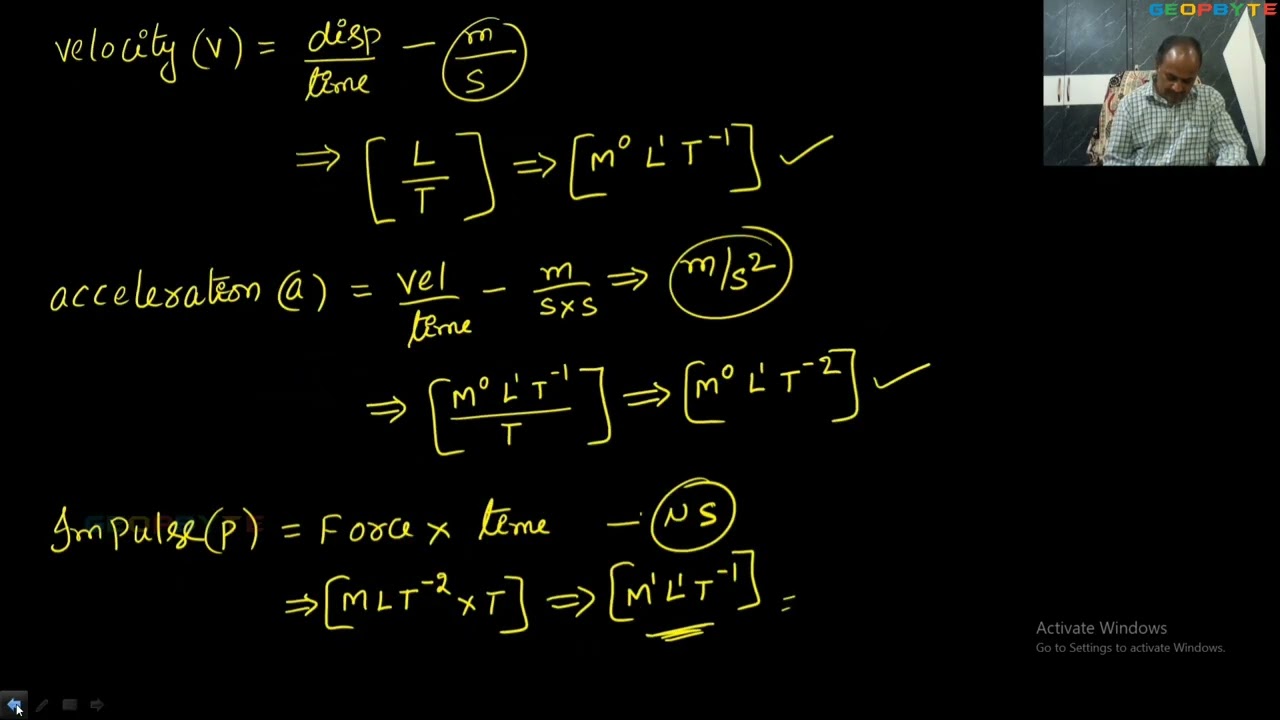 GEOPBYTE
velocity (v) = disp/time — m/s
⇒ [L/T] ⇒ [M⁰ L¹ T⁻¹] ✓
acceleration (a) = vel/time — m/s×s ⇒ m/s²
⇒ [M⁰ L¹ T⁻¹/T] ⇒ [M⁰ L¹ T⁻²] ✓
Impulse(p) = Force × time — NS
⇒ [MLT⁻² × T] ⇒ [M¹ L¹ T⁻¹] =
Activate Windows
Go to Settings to activate Windows.